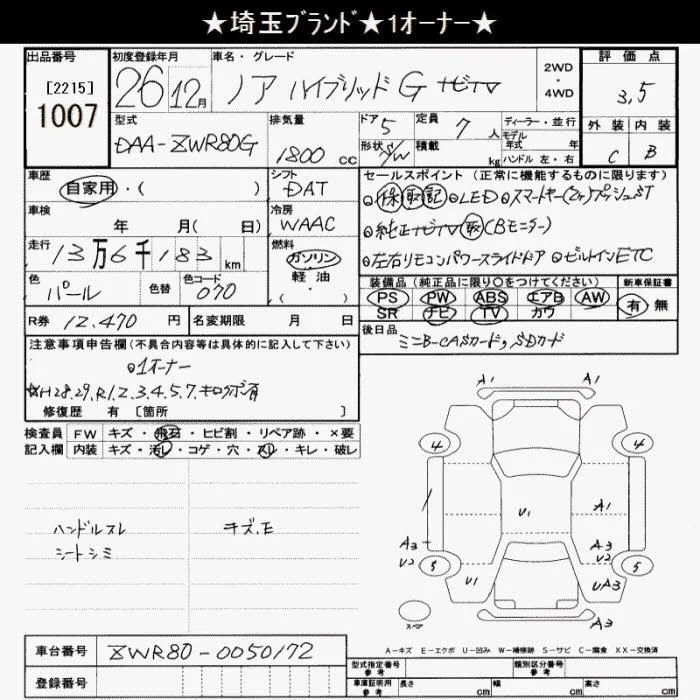 ★埼玉ﾌﾞﾗﾝﾄﾞ★1ｵｰﾅｰ★
出品番号
[2215]
1007
初度登録年月
26 12月
車名・グレード
ノア ハイブリッド G ナビTV
2WD
・
4WD
評価点
3.5
外装 内装
C B
型式
DAA-ZWR80G
排気量
1800 cc
ドア 5
形状 S/W
定員 7 人
積載 kg
ディーラー・並行
モデル
年式 年
ハンドル 左・右
車歴
自家用・( )
シフト
DAT
車検
年 月( 日)
冷房
WAAC
走行
13万6千183 km
燃料
ガソリン
軽油
・( )
色
パール
色替
色コード
070
セールスポイント(正常に機能するものに限ります)
◎保 取 記 ◎LED ◎スマートキー(2ヶ)プッシュST
◎純正ナビTV 取 (Bモニター)
◎左右リモコンパワースライドドア ◎ビルトインETC
装備品(純正品に限り○をつけてください)
PS PW ABS エアB AW
SR ナビ TV カワ
新車保証書
有 無
R券 12,470 円
名変期限 月 日
後日品
ミニB-CASカード, SDカード
注意事項申告欄(不具合内容等は具体的に記入して下さい)
◎1オーナー
☆H28.29,R1.2.3.4.5.7.キロクボ有
修復歴 有 [箇所 ]
検査員
記入欄
FW キズ・飛石・ヒビ割・リペア跡・×要
内装 キズ・汚レ・コゲ・穴・スレ・キレ・破レ
ハンドルスレ
シートシミ
キズ,E
A1 A1
4 4
U1 A1
A3 A3
U2 U2
5 5
U1 UA3
A3
スペア
A-キズ E-エクボ U-凹み W-補修跡 S-サビ C-腐食 XX-交換済
車台番号
ZWR80-0050172
登録番号
型式指定番号
参考
類別区分番号
参考
車庫証明用
参考
長さ cm 幅 cm 高さ cm